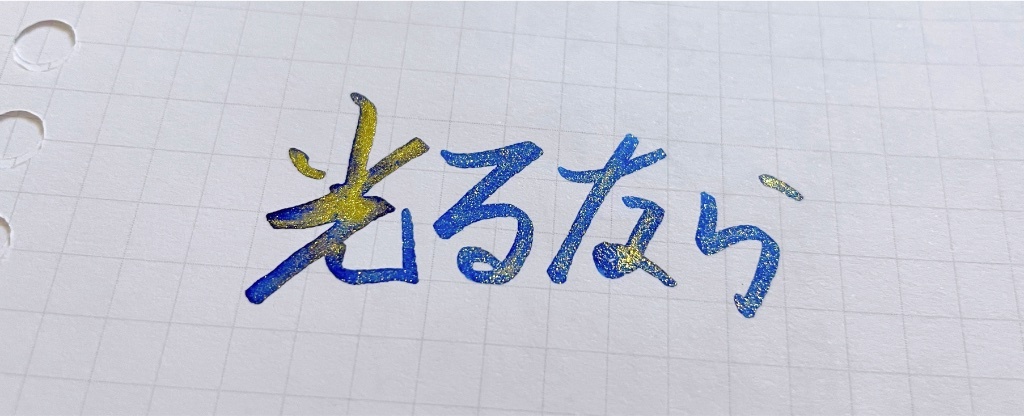 光るなら